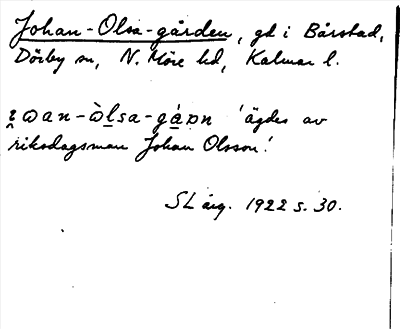 Johan-Olsa-gården, gd i Bårstad,
Dörby sn, N. Möre hd, Kalmar l.
-gå̱ɒn 'ägdes av
riksdagsman Johan Olsson.'
SL årg. 1922 s. 30.